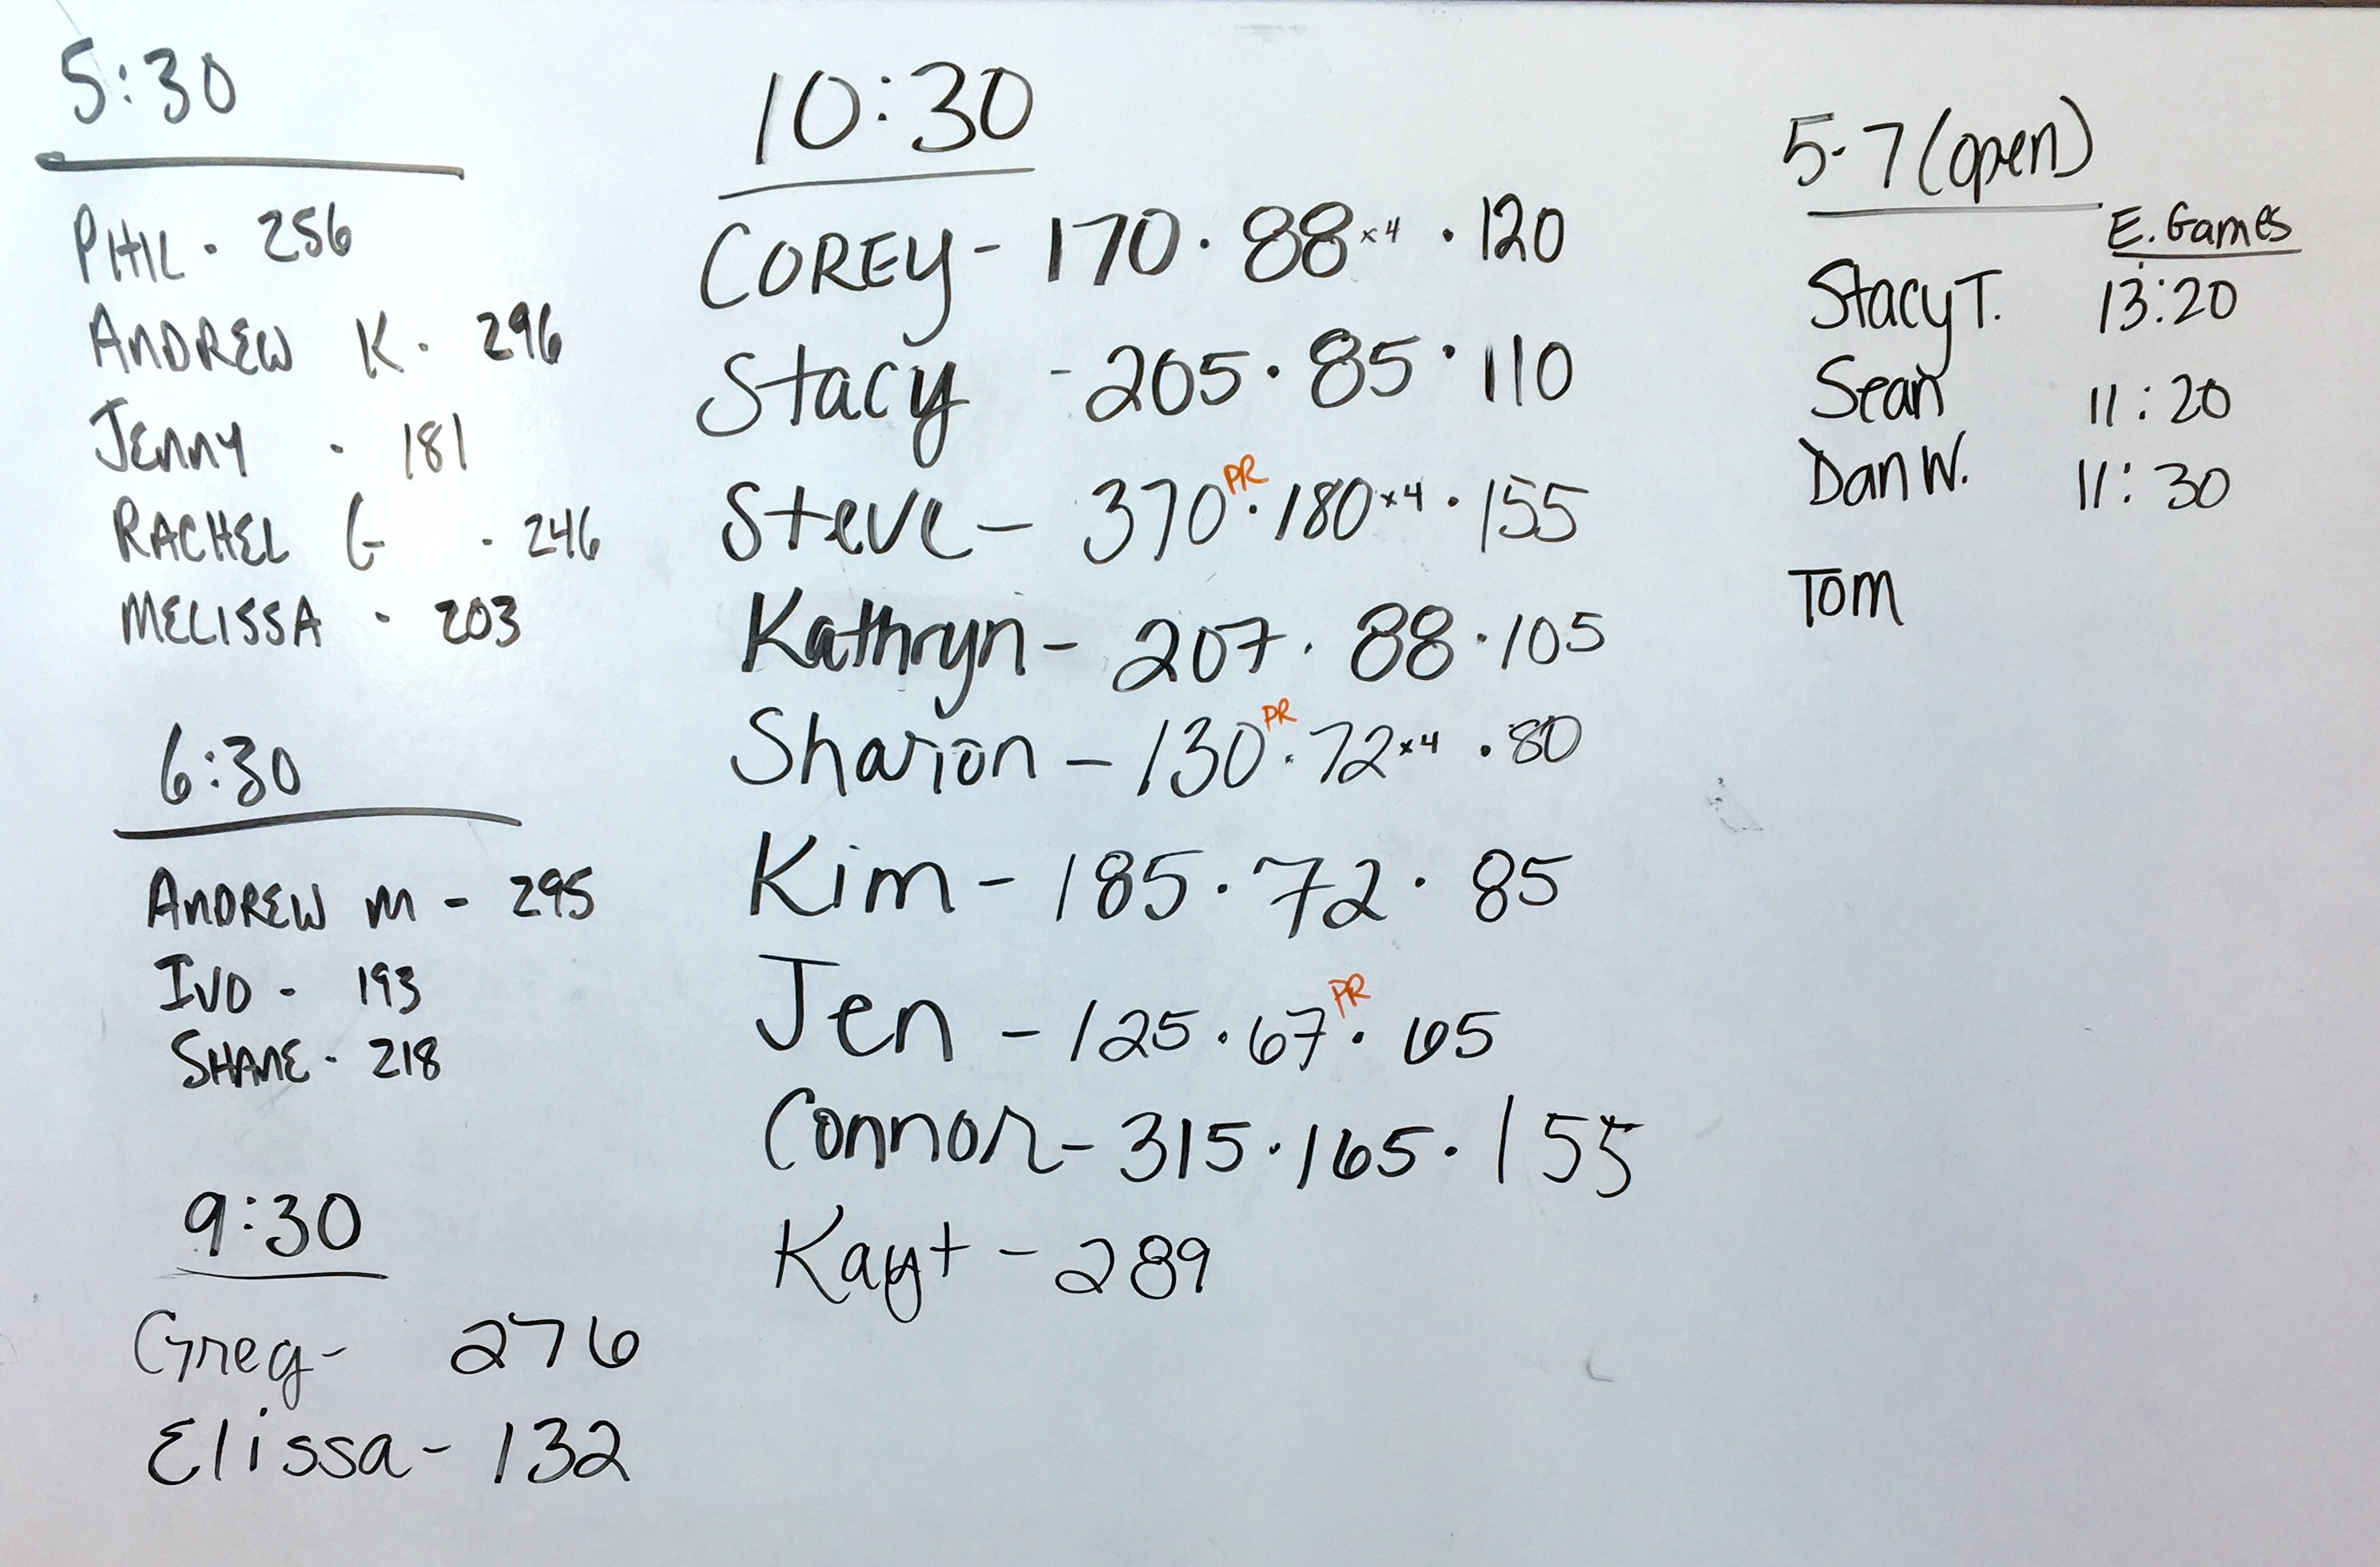 5:30
PHIL - 256
ANDREW K - 296
JENNY - 181
RACHEL G - 246
MELISSA - 203
6:30
ANDREW M - 295
IVO - 193
SHANE - 218
9:30
Greg- 276
Elissa- 132
10:30
COREY- 170 · 88 x4 · 120
Stacy - 205 · 85 · 110
Steve- 370 PR · 180 x4 · 155
Kathryn- 207 · 88 · 105
Sharon - 130 PR · 72 x4 · 80
Kim- 185 · 72 · 85
Jen - 125 · 67 PR · 65
Connor- 315 · 165 · 155
Kayt - 289
5-7 (open)
E. Games
Stacy T. 13:20
Sean 11:20
Dan W. 11:30
Tom